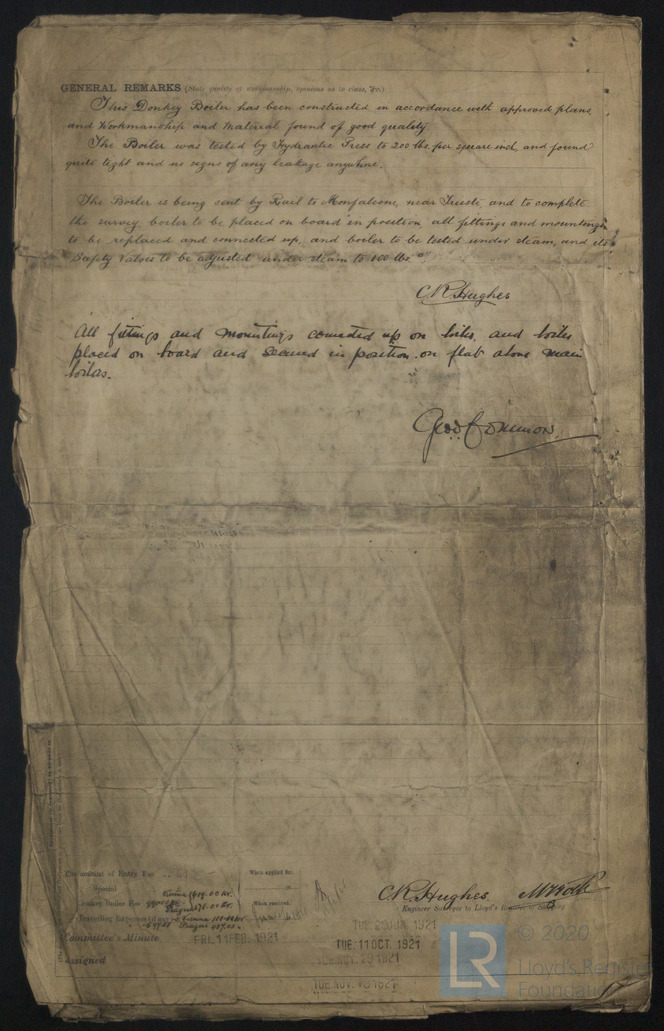 GENERAL REMARKS (State quality of workmanship, opinions as to class, &c.)
This Donkey Boiler has been constructed in accordance with approved plans
and Workmanship and Material found of good quality
The Boiler was tested by Hydraulic Press to 200 lbs. per square inch and found
quite tight and no signs of any leakage anywhere.
The Boiler is being sent by Rail to Monfalcone, near Trieste, and to complete
the survey boiler to be placed on board in position all fittings and mountings
to be replaced and connected up, and boiler to be tested under steam, and its
Safety Valves to be adjusted under steam to 100 lbs.
C.R. Hughes
All fittings and mountings connected up on boiler, and boiler
placed on board and secured in position on flat above main
boilers.
The amount of Entry Fee
When applied for
Special
Donkey Boiler Fee
When received
Travelling Expenses (if any)
C.R. Hughes
Engineer Surveyor to Lloyd's Register of
Committee's Minute
FRI. 11 FEB. 1921
TUE. 1921
TUE. 11 OCT 1921
TUE. NOV. 29 1921
TUE. NOV. 1921
assigned
LR
© 2020
Lloyd's Register
Foundation